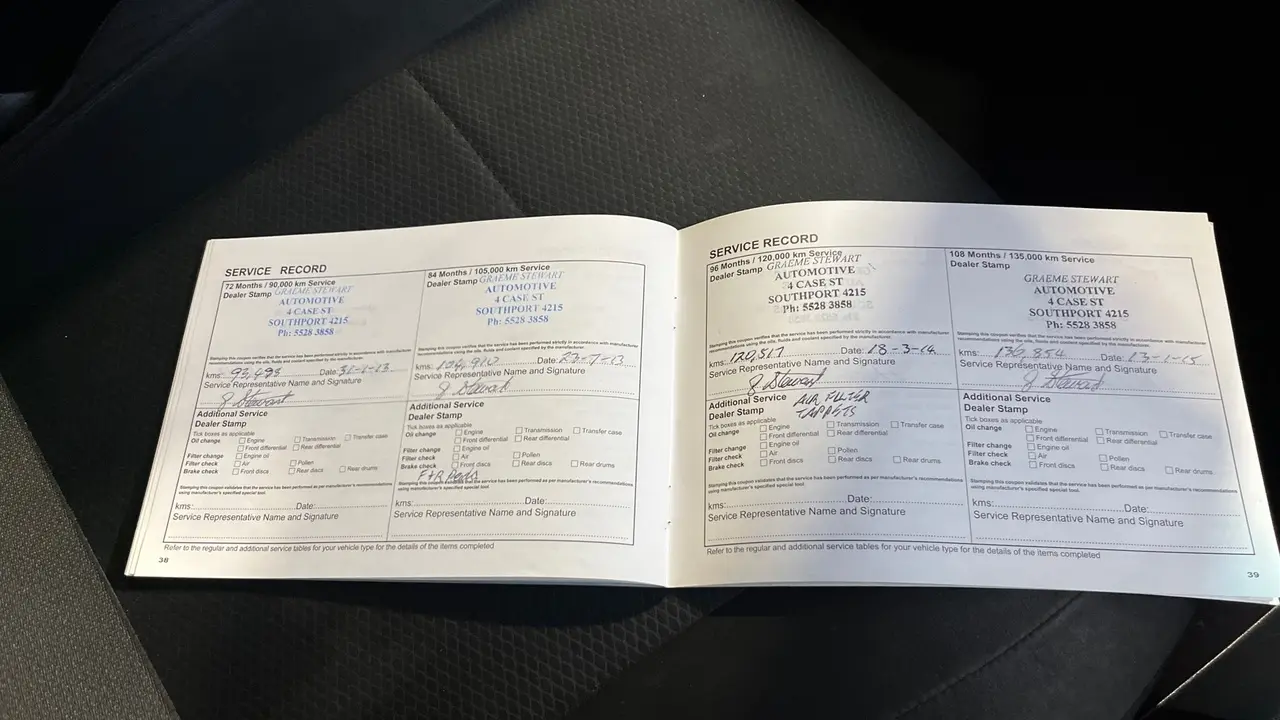 SERVICE RECORD
72 Months / 90,000 km Service
Dealer Stamp GRAEME STEWART
AUTOMOTIVE
4 CASE ST
SOUTHPORT 4215
Ph: 5528 3858
Stamping this coupon verifies that the service has been performed strictly in accordance with manufacturer
recommendations using the oils, fluids and coolant specified by the manufacturer.
kms: 93,493 Date: 31-1-13
Service Representative Name and Signature
G Stewart
Additional Service
Dealer Stamp
Tick boxes as applicable
Oil change Engine Transmission Transfer case
Front differential Rear differential
Filter change Engine oil
Filter check Air Pollen
Brake check Front discs Rear discs Rear drums
Stamping this coupon validates that the service has been performed as per manufacturer's recommendations
using manufacturer's specified special tool.
kms: Date:
Service Representative Name and Signature
84 Months / 105,000 km Service
Dealer Stamp GRAEME STEWART
AUTOMOTIVE
4 CASE ST
SOUTHPORT 4215
Ph: 5528 3858
Stamping this coupon verifies that the service has been performed strictly in accordance with manufacturer
recommendations using the oils, fluids and coolant specified by the manufacturer.
kms: Date: 23-7-13
Service Representative Name and Signature
G Stewart
Additional Service
Dealer Stamp
Tick boxes as applicable
Oil change Engine Transmission Transfer case
Front differential Rear differential
Filter change Engine oil
Filter check Air Pollen
Brake check Front discs Rear discs Rear drums
F+R Pads
Stamping this coupon validates that the service has been performed as per manufacturer's recommendations
using manufacturer's specified special tool.
kms: Date:
Service Representative Name and Signature
Refer to the regular and additional service tables for your vehicle type for the details of the items completed
38
SERVICE RECORD
96 Months / 120,000 km Service
Dealer Stamp GRAEME STEWART
AUTOMOTIVE
4 CASE ST
SOUTHPORT 4215
Ph: 5528 3858
Stamping this coupon verifies that the service has been performed strictly in accordance with manufacturer
recommendations using the oils, fluids and coolant specified by the manufacturer.
kms: 120,517 Date: 18-3-14
Service Representative Name and Signature
G Stewart
Additional Service AIR FILTER
Dealer Stamp TAPPETS
Tick boxes as applicable
Oil change Engine Transmission Transfer case
Front differential Rear differential
Filter change Engine oil
Filter check Air Pollen
Brake check Front discs Rear discs Rear drums
Stamping this coupon validates that the service has been performed as per manufacturer's recommendations
using manufacturer's specified special tool.
kms: Date:
Service Representative Name and Signature
108 Months / 135,000 km Service
Dealer Stamp
GRAEME STEWART
AUTOMOTIVE
4 CASE ST
SOUTHPORT 4215
Ph: 5528 3858
Stamping this coupon verifies that the service has been performed strictly in accordance with manufacturer
recommendations using the oils, fluids and coolant specified by the manufacturer.
kms: 136,854 Date: 13-1-15
Service Representative Name and Signature
G Stewart
Additional Service
Dealer Stamp
Tick boxes as applicable
Oil change Engine Transmission Transfer case
Front differential Rear differential
Filter change Engine oil
Filter check Air Pollen
Brake check Front discs Rear discs Rear drums
Stamping this coupon validates that the service has been performed as per manufacturer's recommendations
using manufacturer's specified special tool.
kms: Date:
Service Representative Name and Signature
Refer to the regular and additional service tables for your vehicle type for the details of the items completed
39